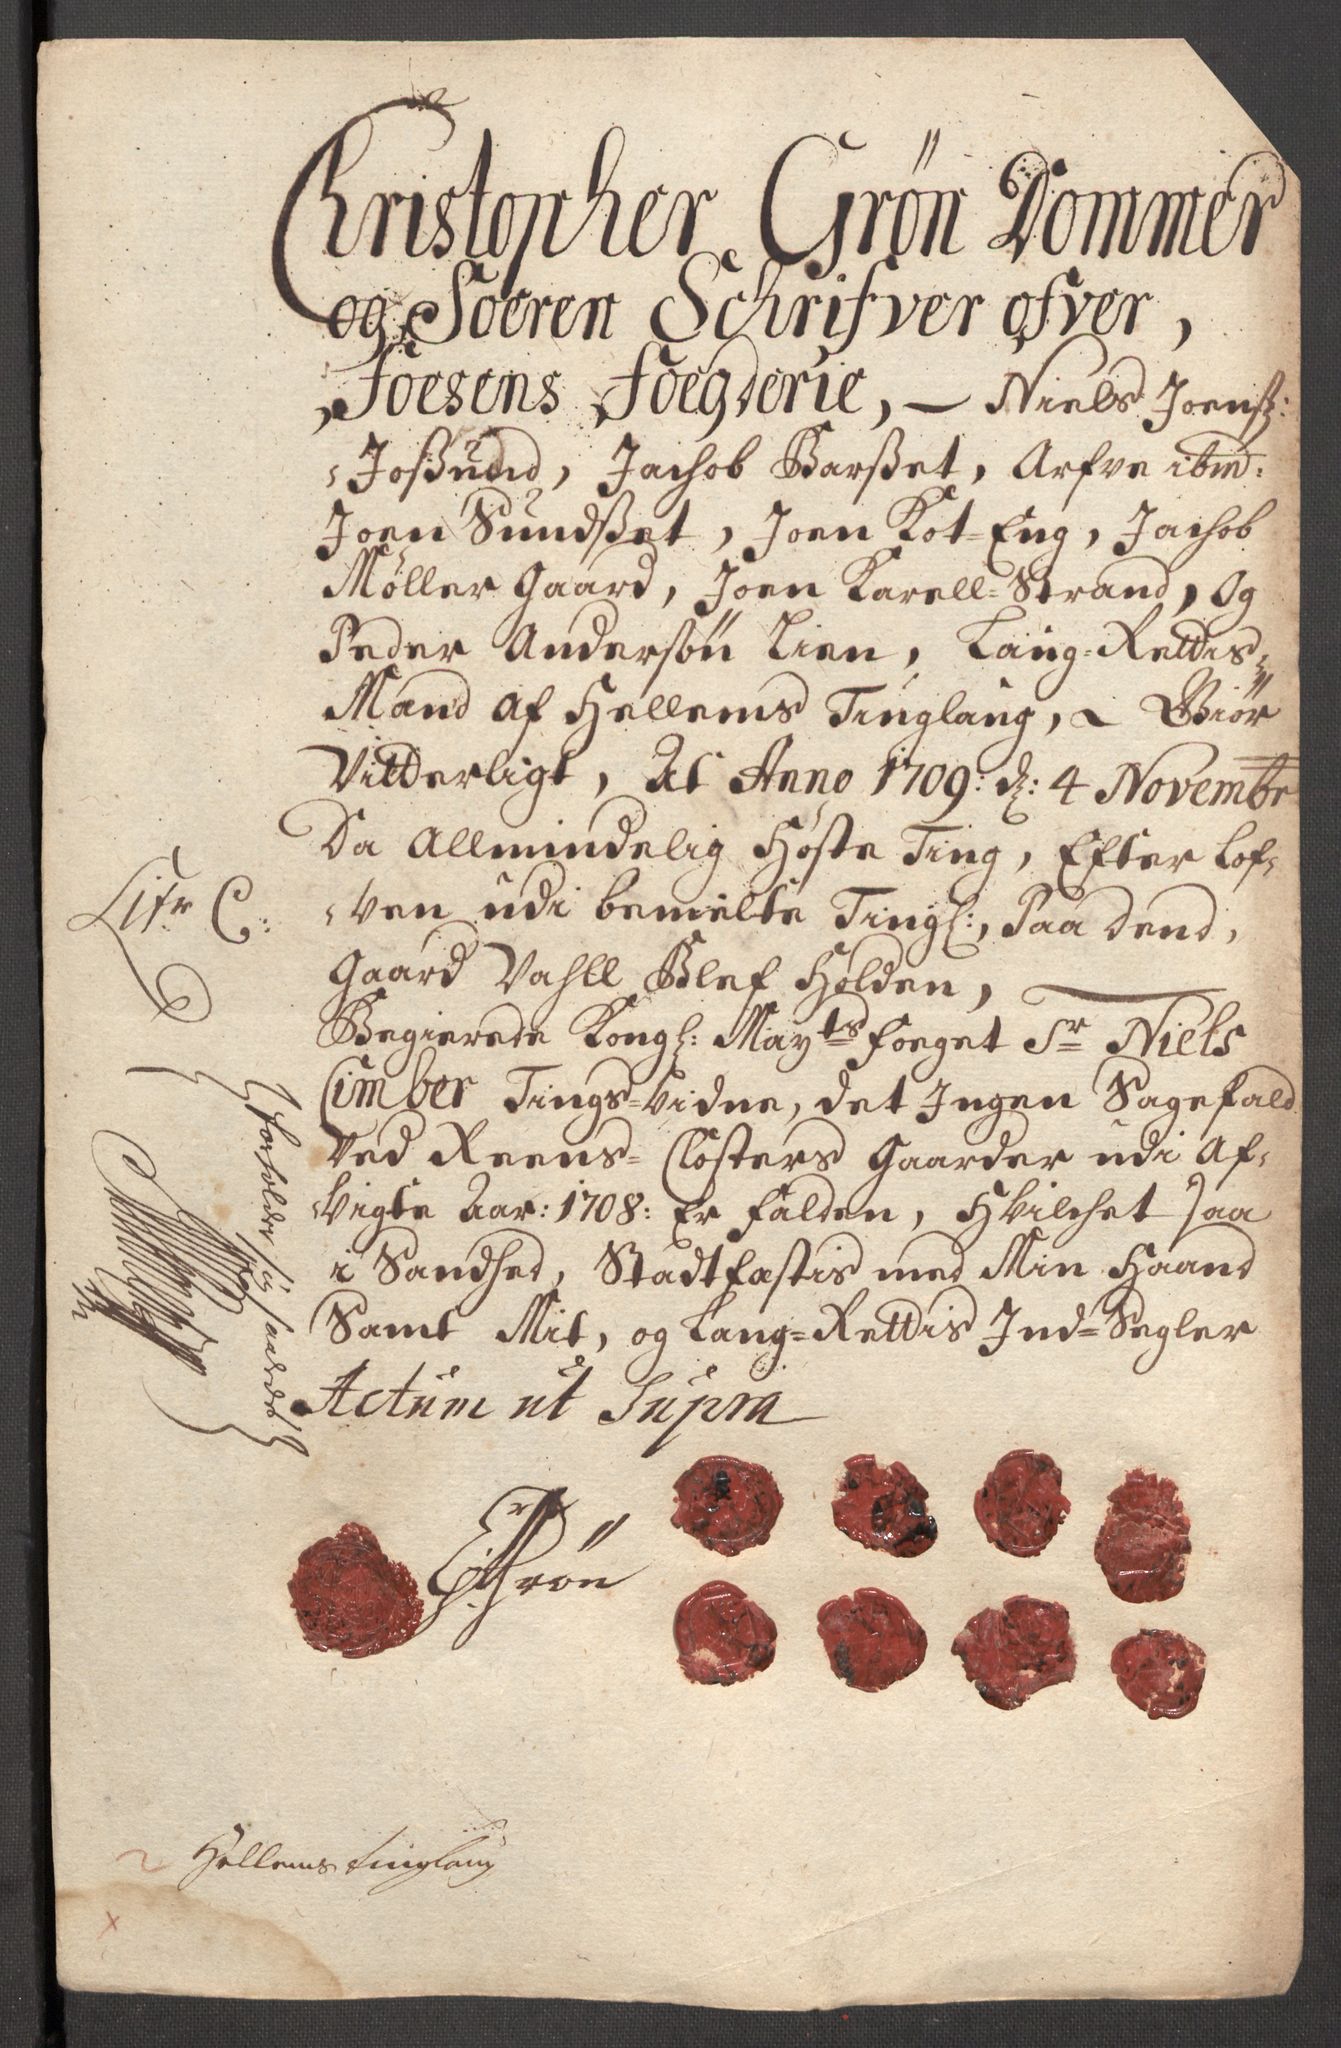 Christopher Grön Dommer
og Soeren Schrifver ofver,
Foesens Foegderie, — Niels Joensz:
Joßund, Jachob Barßet, Arfve ibm:
Joen Sundßet, Joen Kot=Eng, Jachob
Møller Gaard, Joen Karell=Strand, og
Peder Andersön Lien, Laug=Rettis
Mænd af Hellems Tinglaug, Giör
Vitterligt, At Anno 1709: dz: 4 Novembr
Da Allmindelig Høste Ting, Efter Lof-
-ven udi bemelte Tingl:, Paa dend,
Gaard Vahll Blef Holden,
Begierede Kongl: Mayts Foeget Sr Niels
Cimber Tings=Vidne, det Ingen Sagefald
Ved Reens=Closters Gaarder udi Af-
-vigte Aar: 1708: Er falden, Hvilchet saa
i Sandhed, Stadtfæstis med Min Haand
Samt Mit, og Laug=Rettis Ind=Segler
Actum ut Supra
CGrön
Litr C:
forholder sig saaledes
Hellems tinglaug